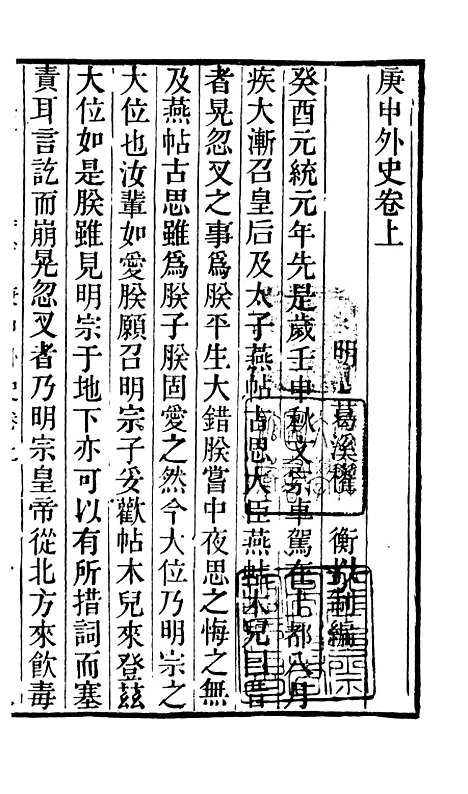 庚申外史卷上
明 葛溪權 衡以制編
癸酉元統元年先是歲壬申秋文宗車駕在上都八月
疾大漸召皇后及太子燕帖古思大臣燕帖木兒曰昔
者晃忽叉之事爲朕平生大錯朕嘗中夜思之悔之無
及燕帖古思雖爲朕子朕固愛之然今大位乃明宗之
大位也汝輩如愛朕願召明宗子妥歡帖木兒來登茲
大位如是朕雖見明宗于地下亦可以有所措詞而塞
責耳言訖而崩晃忽叉者乃明宗皇帝從北方來飮毒